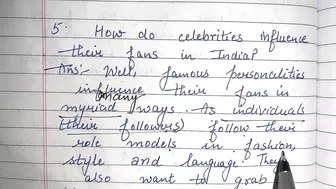 5. How do celebrities influence
their fans in India?
Ans:- Well, famous personalities
influence their fans in
many
myriad ways. As individuals
(their followers) follow their
role models in fashion,
style and language. They
also want to grab